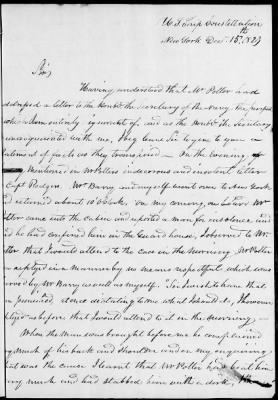 U.S. Ship Constellation
New York Decr 15th 1827
Sir,
Having understood that Mr Potter had
addressed a letter to the Honble the Secretary of the Navy, the purport
which I am entirely ignorant of, and as the Honble the Secretary
unacquainted with me, I beg leave Sir to give to you a
statement of facts as they transpired — On the evening
mentioned in Mr Potters and insolent letter
Capt Rodgers. Mr Barry and myself went over to New York
and returned about 10 o'Clock, on my coming on board Mr
Potter came into the Cabin and reported a man for insolence and
he had confined him in the Guard house, I observed to Mr
Potter that I would attend to the case in the morning, Mr Potter
replyed in a manner by no means respectful which was
by Mr Barry as well as myself.
dictating to me what I should do, I however
replyed as before that I would attend to it in the morning —
When the man was brought before me he complained
much of his back and shoulders and on my enquiring
what was the cause I learnt that Mr Potter had beat him
very much and had stabbed him with a dirk,